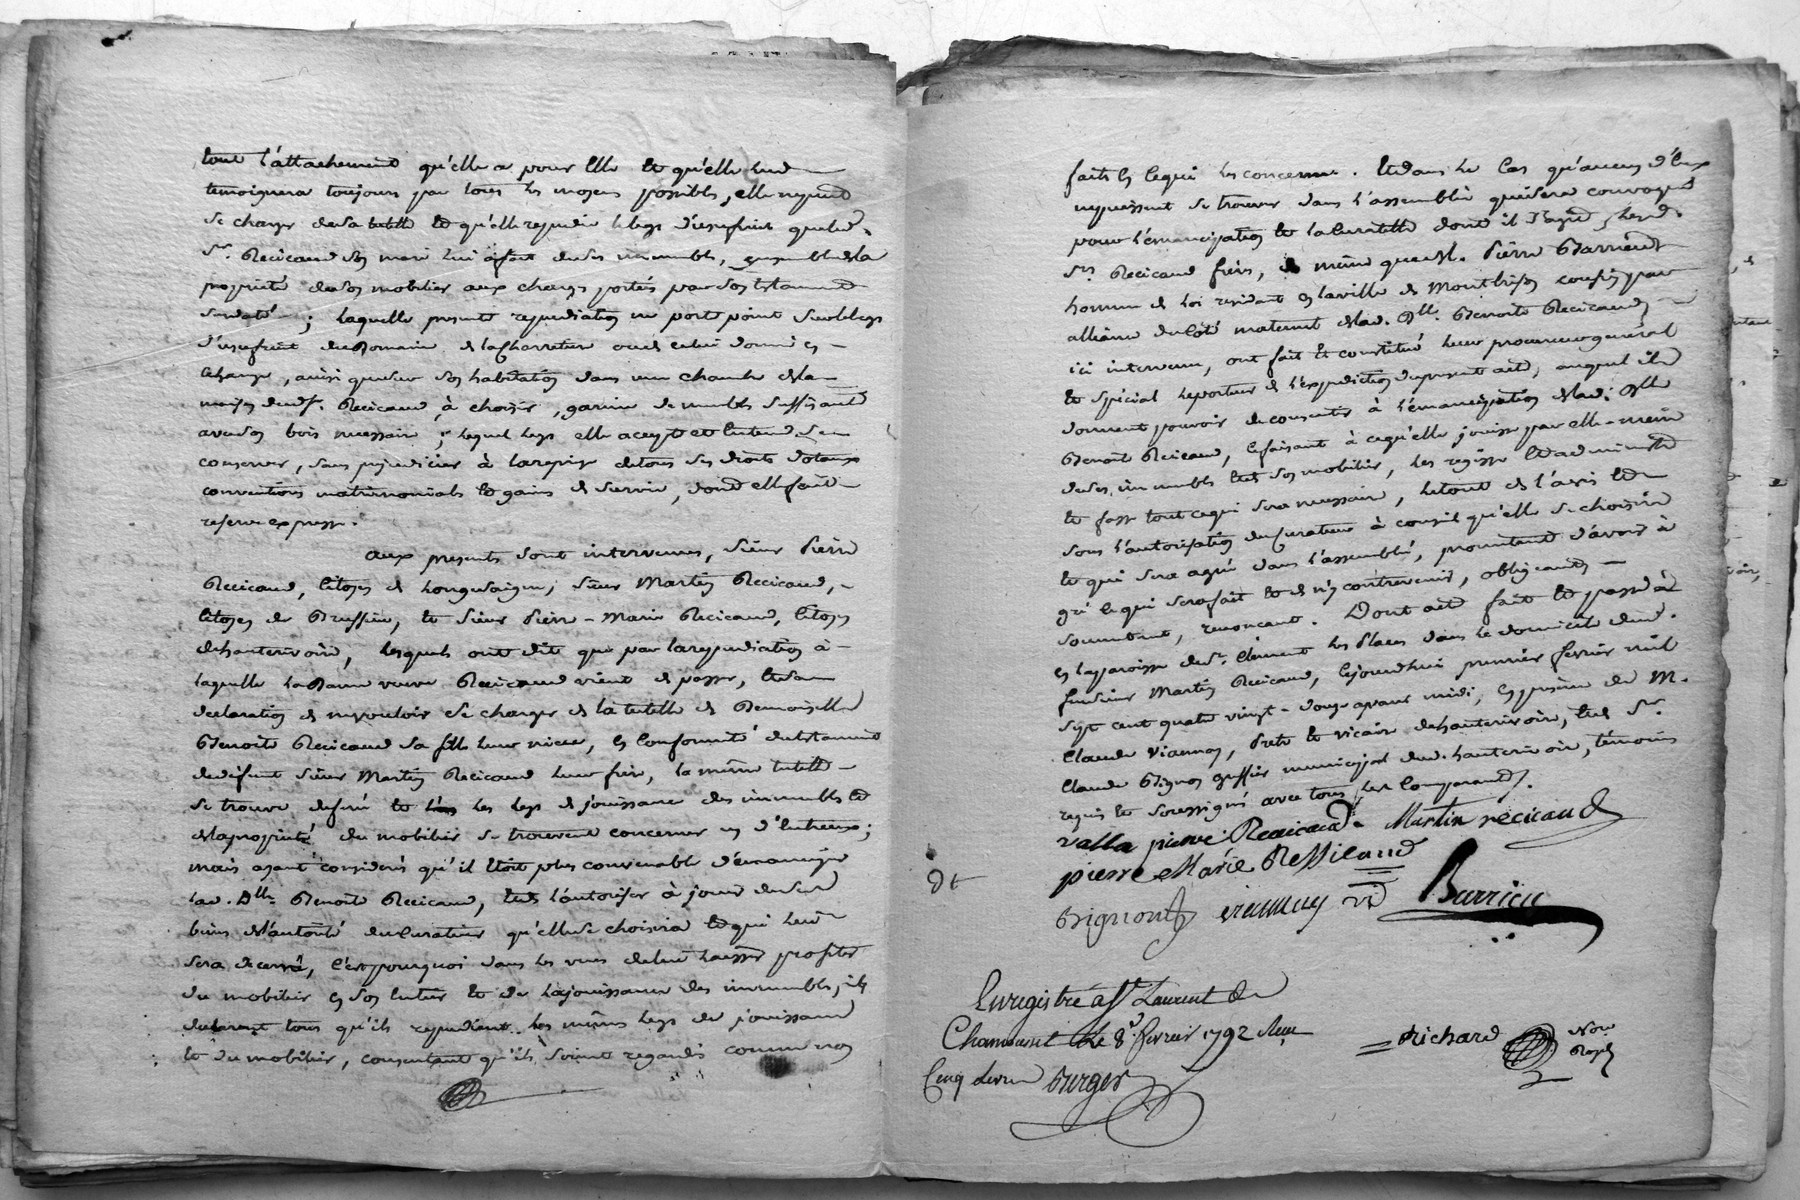 tout l'attachement qu'elle a pour elle et qu'elle lui
temoignera toujours par tous les moyens possibles, elle repudie
se charger de sa tutelle et qu'elle repudie le legs d'usufruit que led.
Sr. Recicaud son mari lui a fait de ses immeubles, ensemble de la
propriété de son mobilier aux charges portés par son testament
susdaté; laquelle presente repudiation ne porte point sur le legs
d'usufruit du Domaine de la Charretier ou de celui donné en
échange, ainsi que sur son habitation dans une chambre de la
maison dud. Sr. Recicaud à choisir, garnie de meubles suffisants
avec son bois necessaire; lequel legs elle accepte et entend se
conserver, sans prejudicier à la reprise de tous ses droits dotaux
conventions matrimoniales et gains de survie, dont elle fait
reserve expresse.
aux presents sont intervenus, Sieur Pierre
Recicaud, citoyen de Longessaigne, Sieur Martin Recicaud,
citoyen de Brussieu, et Sieur Pierre-Marie Recicaud, citoyen
de hauterivoire, lesquels ont dit que par la repudiation à
laquelle la Dame veuve Recicaud vient de passer, et sa
declaration de ne vouloir se charger de la tutelle de Demoiselle
Benoite Recicaud sa fille leur niece, en conformité du testament
de defunt Sieur Martin Recicaud leur frere, la même tutelle
se trouve deferée et les legs de jouissance des immeubles et
de la propriété du mobilier se trouvent concerner un d'entreux;
mais ayant consideré qu'il étoit plus convenable d'émanciper
lad. Dlle. Benoite Recicaud, et de l'autoriser à jouir de ses
biens de l'autorité du Curateur qu'elle se choisira et qui leur
sera decerné, c'est pourquoi dans les vues de lui laisser profiter
du mobilier en son entier et de la jouissance des immeubles, ils
declarent tous qu'ils repudient les mêmes legs de jouissance
et du mobilier, consentant qu'ils soient regardés comme non
faits en ce qui les concerne. Et dans le cas qu'aucun d'eux
ne puissent se trouver dans l'assemblée qui sera convoquée
pour l'émancipation et la Curatelle dont il s'agit, lesd.
Srs. Recicaud freres, de même que M. Pierre Barrieu
homme de loi residant en la ville de Montbrison cousin par
alliance du côté maternel de lad. Dlle. Benoite Recicaud
ici intervenu, ont fait et constitué leur procureur general
et special le porteur de l'expedition du present acte, auquel ils
donnent pouvoir de consentir à l'émancipation de lad. Dlle
Benoite Recicaud, ce faisant à ce qu'elle jouisse par elle-même
de ses immeubles et de son mobilier, les regisse et administre
et fasse tout ce qui sera necessaire, le tout de l'avis et
sous l'autorisation du Curateur à conseil qu'elle se choisira
et qui sera agréé dans l'assemblée, promettant d'avoir à
gré ce qui sera fait et de n'y contrevenir, obligeants
soumettant, renonçant. Dont acte fait et passé à
en la paroisse de St. Clement les Places dans le domicile dud.
feu Sieur Martin Recicaud, cejourdhui premier fevrier mil
sept cent quatre vingt-douze avant midi, en presence de M.
Claude Viannay, Prêtre et vicaire de hauterivoire, et de Sr.
Claude Bignon greffier municipal dud. hauterivoire, témoins
requis et soussignés avec tous les Comparants.
valla pierre Recicaud Martin récicaud
pierre Marie Ressicaud
Bignon viannay vic Barrieu
Enregistré à St Laurent de
Chamousset le 8 fevrier 1792 Reçu
Cinq Livres Burger
Richard Nore
Royal